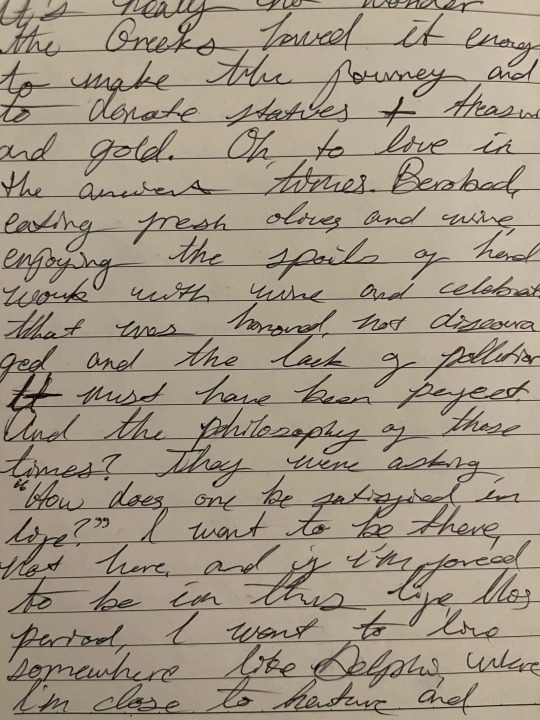 It's really no wonder
the Greeks loved it enoug
to make the journey and
to donate statues + treasu
and gold. Oh, to live in
the ancient times. Berobed,
eating fresh olives and wine,
enjoying the spoils of hard
work with wine and celebrat
that was honored, not discoura
ged and the lack of pollution
It must have been perfect.
And the philosophy of those
times? They were asking
"How does one be satisfied in
life?" I want to be there,
not here, and if i'm forced
to be in this life
period, I want to live
somewhere like Delphi, where
I'm close to nature and